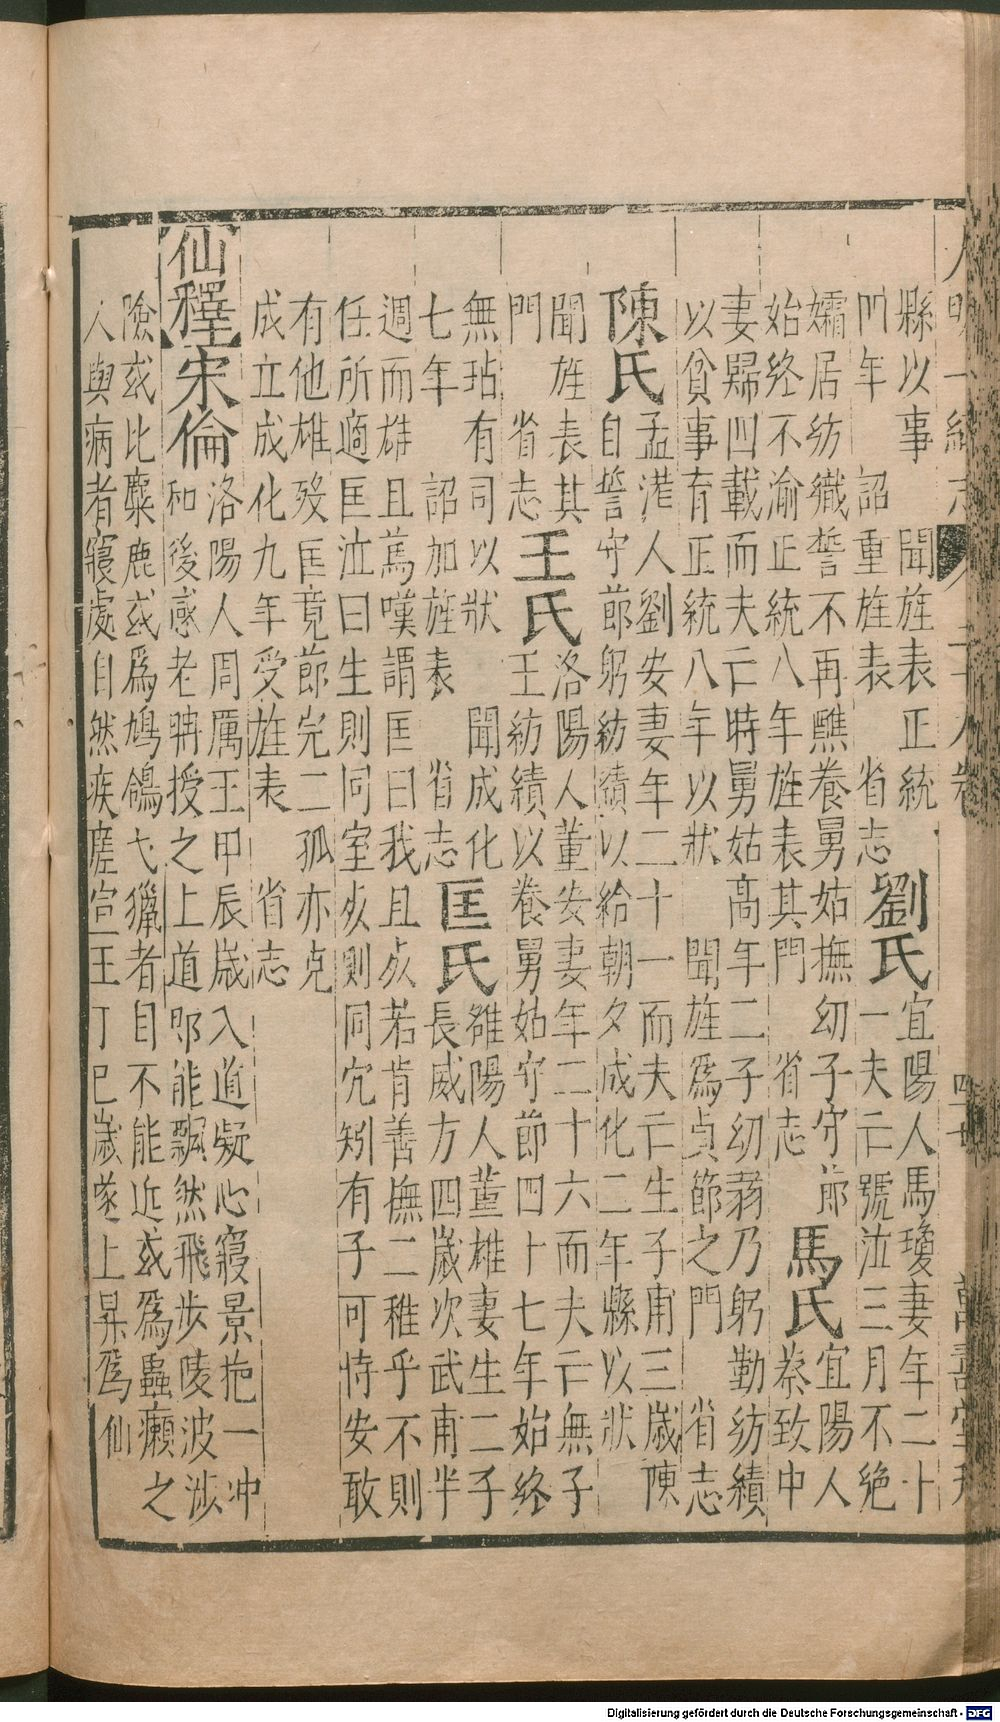 大明一統志 二十八卷 萬壽堂刊
縣以事 聞旌表正統
四年 詔重旌表 省志
劉氏
宜陽人馬瓊妻年二十
一夫亡號泣三月不絶
孀居紡織誓不再醮養舅姑撫幼子守節
始终不渝正統八年旌表其門 省志
馬氏
宜陽人
蔡致中
妻歸四載而夫亡時舅姑高年二子幼弱乃躬勤紡績
以貧事育正統八年以狀 聞旌爲貞節之門 省志
陳氏
孟津人劉安妻年二十一而夫亡生子甫三歲陳
自誓守節躬紡績以給朝夕成化二年縣以狀
聞旌表其
門 省志
王氏
洛陽人董安妻年二十六而夫亡無子
王紡績以養舅姑守節四十七年始终
無玷有司以狀 聞成化
七年 詔加旌表 省志
匡氏
雒陽人董雄妻生二子
長威方四歲次武甫半
週而雄且篤嘆謂匡曰我且死若肯善撫二稚乎不則
任所適匡泣曰生則同室死則同穴矧有子可恃安敢
有他雄殁匡竟節完二孤亦克
成立成化九年受旌表 省志
仙釋
宋倫
洛陽人周厲王甲辰歲入道凝心寢景抱一冲
和後感老聃授之上道即能飄然飛步陵波涉
險或比麋鹿或爲鳩鴿弋獵者目不能近或爲蟲癩之
人與病者寢處自然疾瘥宣王丁巳歲遂上昇爲仙
Digitalisierung gefördert durch die Deutsche Forschungsgemeinschaft - DFG